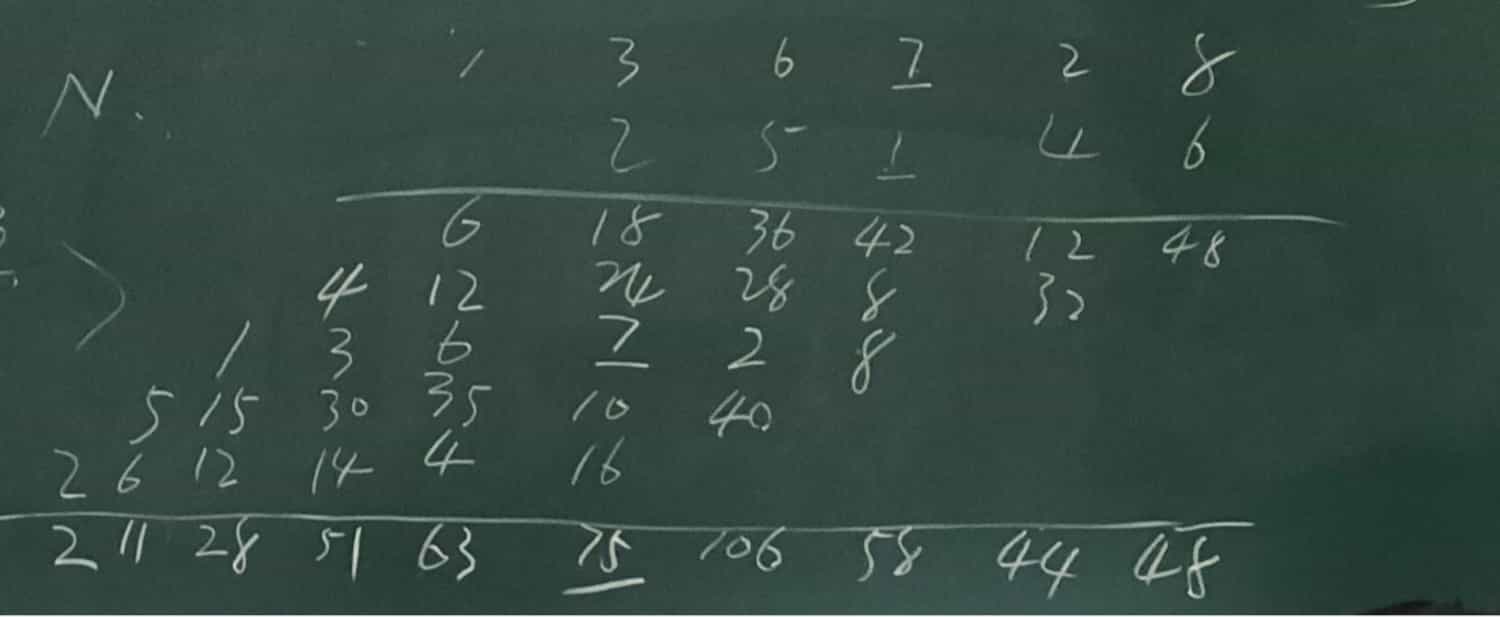 1 3 6 7 2 8
N. 2 5 1 4 6
6 18 36 42 12 48
4 12 24 28 8 32
1 3 6 7 2 8
5 15 30 35 10 40
2 6 12 14 4 16
2 11 28 51 63 75 106 58 44 48